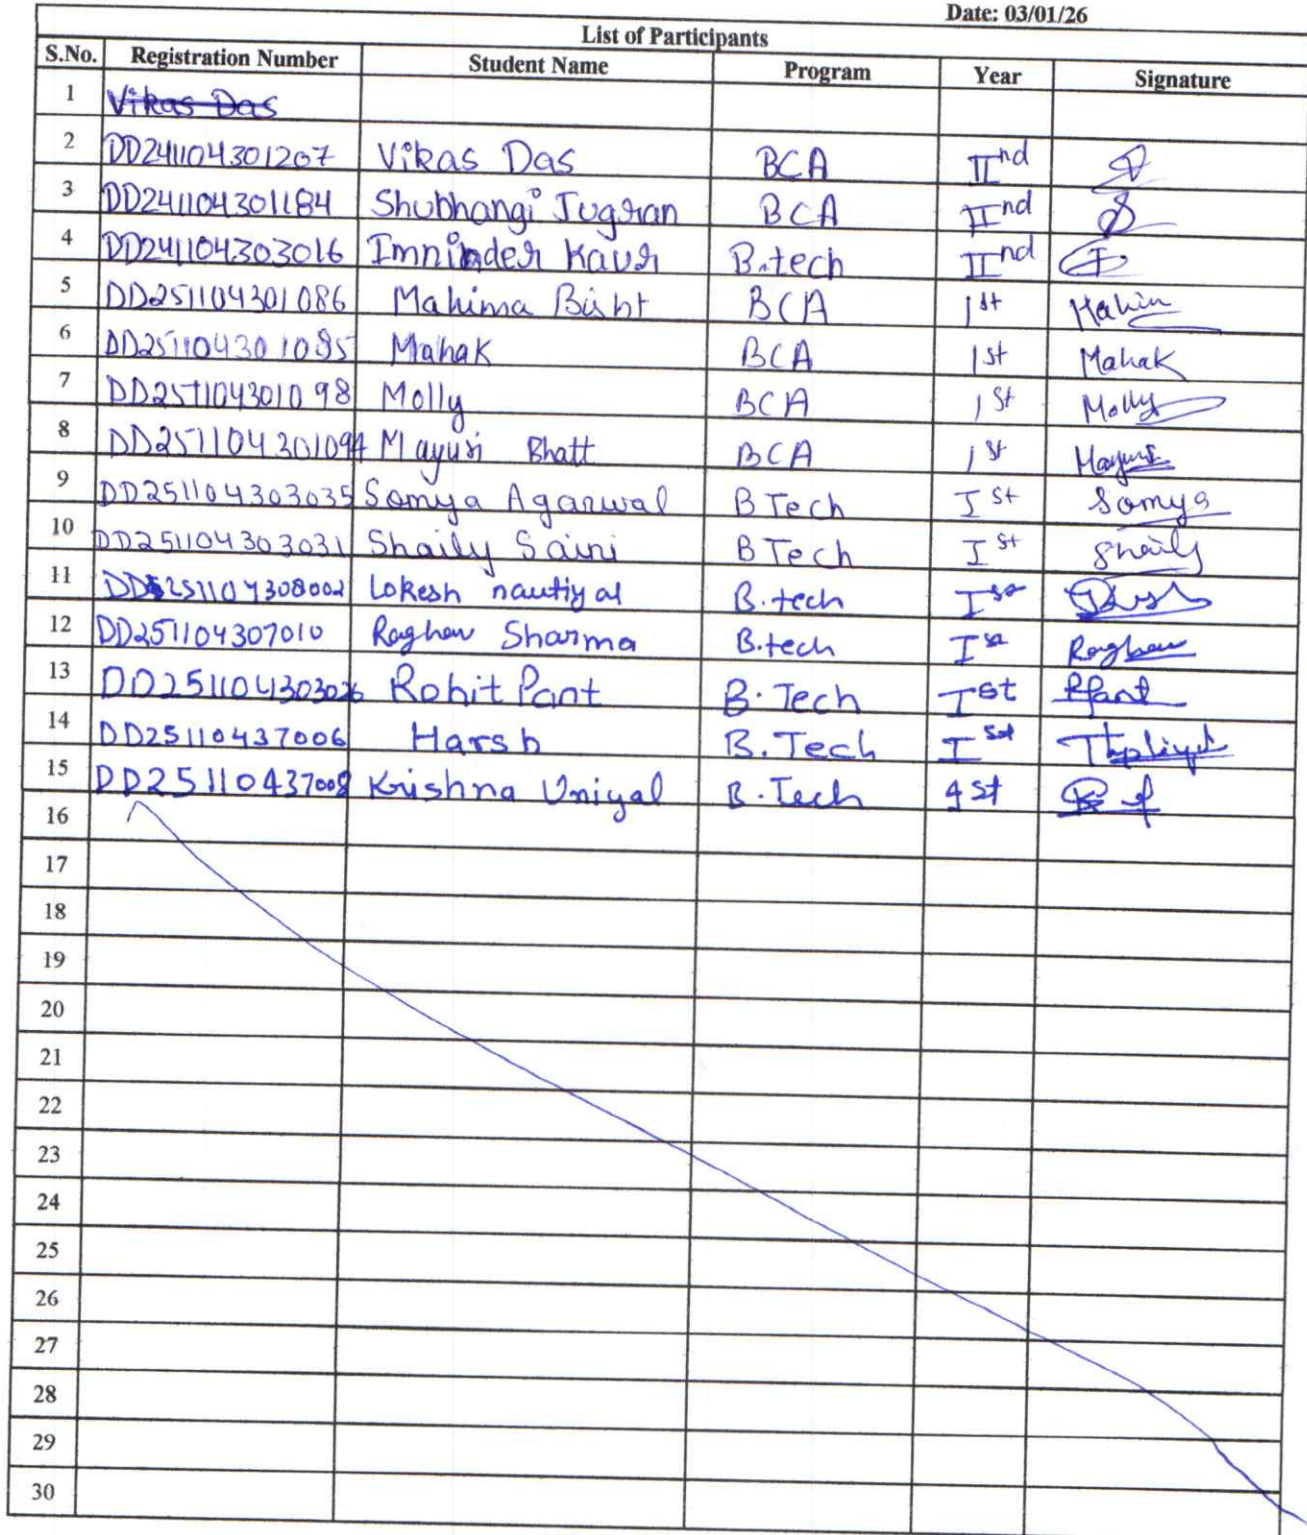 Date: 03/01/26
List of Participants
S.No. Registration Number Student Name Program Year Signature
1 Vikas Das
2 DD241104301207 Vikas Das BCA IInd
3 DD241104301184 Shubhangi Jugran BCA IInd
4 DD241104303016 Imninder Kaur B.tech IInd
5 DD251104301086 Mahima Bisht BCA 1st Mahim
6 DD251104301085 Mahak BCA 1st Mahak
7 DD251104301098 Molly BCA 1st Molly
8 DD251104301094 Mayuri Bhatt BCA 1st Mayuri
9 DD251104303035 Somya Agarwal B Tech Ist Somya
10 DD251104303031 Shaily Saini B Tech Ist Shaily
11 DD251104308002 Lokesh nautiyal B.tech Ist
12 DD251104307010 Raghav Sharma B.tech Ist Raghav
13 DD251104303026 Rohit Pant B. Tech Ist RPant
14 DD25110437006 Harsh B. Tech Ist Thpliyal
15 DD25110437008 Krishna Uniyal B. Tech 1st
16
17
18
19
20
21
22
23
24
25
26
27
28
29
30